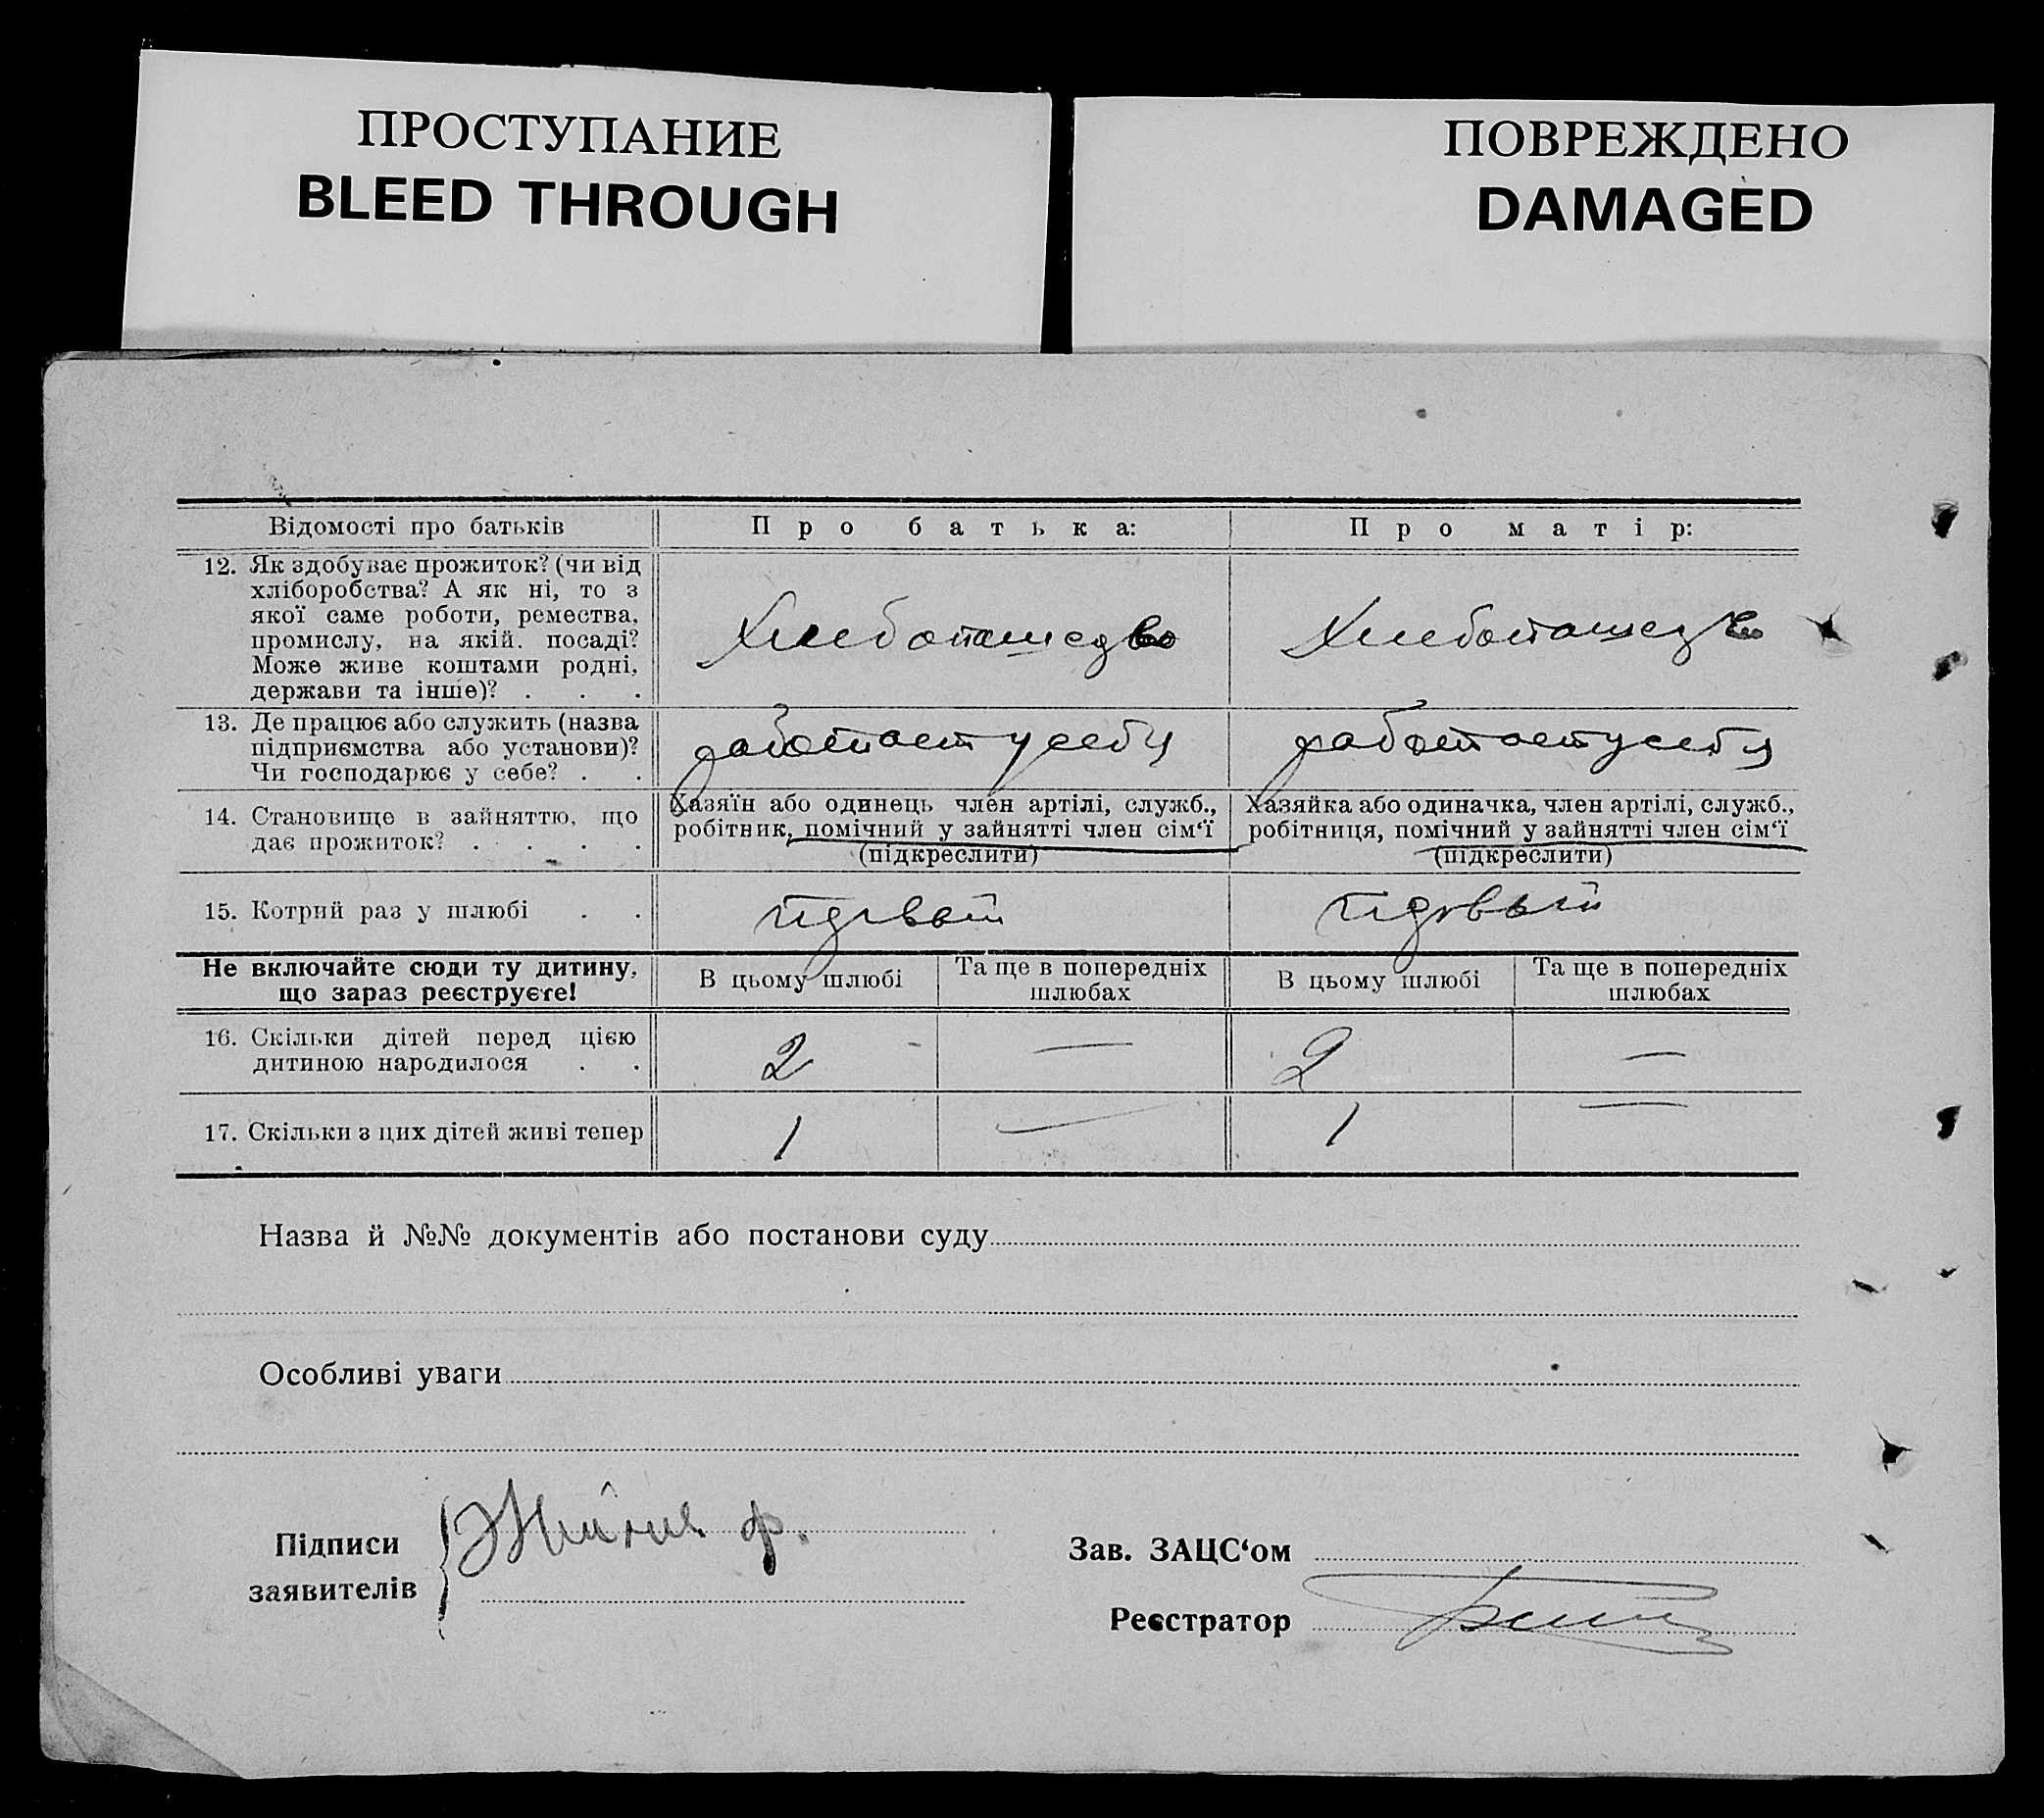 ПРОСТУПАНИЕ
BLEED THROUGH
ПОВРЕЖДЕНО
DAMAGED
Відомості про батьків
Про батька:
Про матір:
12. Як здобуває прожиток? (чи від
хліборобства? А як ні, то з
якої саме роботи, ремества,
промислу, на якій. посаді?
Може живе коштами родні,
держави та інше)? . . .
Хлебопашедво
Хлебопашедво
13. Де працює або служить (назва
підприємства або установи)?
Чи господарює у себе? . .
работает у себя
работает у себя
14. Становище в зайняттю, що
дає прожиток? . . . .
Хазяїн або одинець член артілі, служб.,
робітник, помічний у зайнятті член сім‘ї
(підкреслити)
Хазяйка або одиначка, член артілі, служб.,
робітниця, помічний у зайнятті член сім‘ї
(підкреслити)
15. Котрий раз у шлюбі . .
первый
первый
Не включайте сюди ту дитину,
що зараз реєструєте!
В цьому шлюбі
Та ще в попередніх
шлюбах
В цьому шлюбі
Та ще в попередніх
шлюбах
16. Скільки дітей перед цією
дитиною народилося . .
2
—
2
—
17. Скільки з цих дітей живі тепер
1
—
1
—
Назва й №№ документів або постанови суду
Особливі уваги
Підписи
заявителів
ф.
Зав. ЗАЦС‘ом
Реєстратор